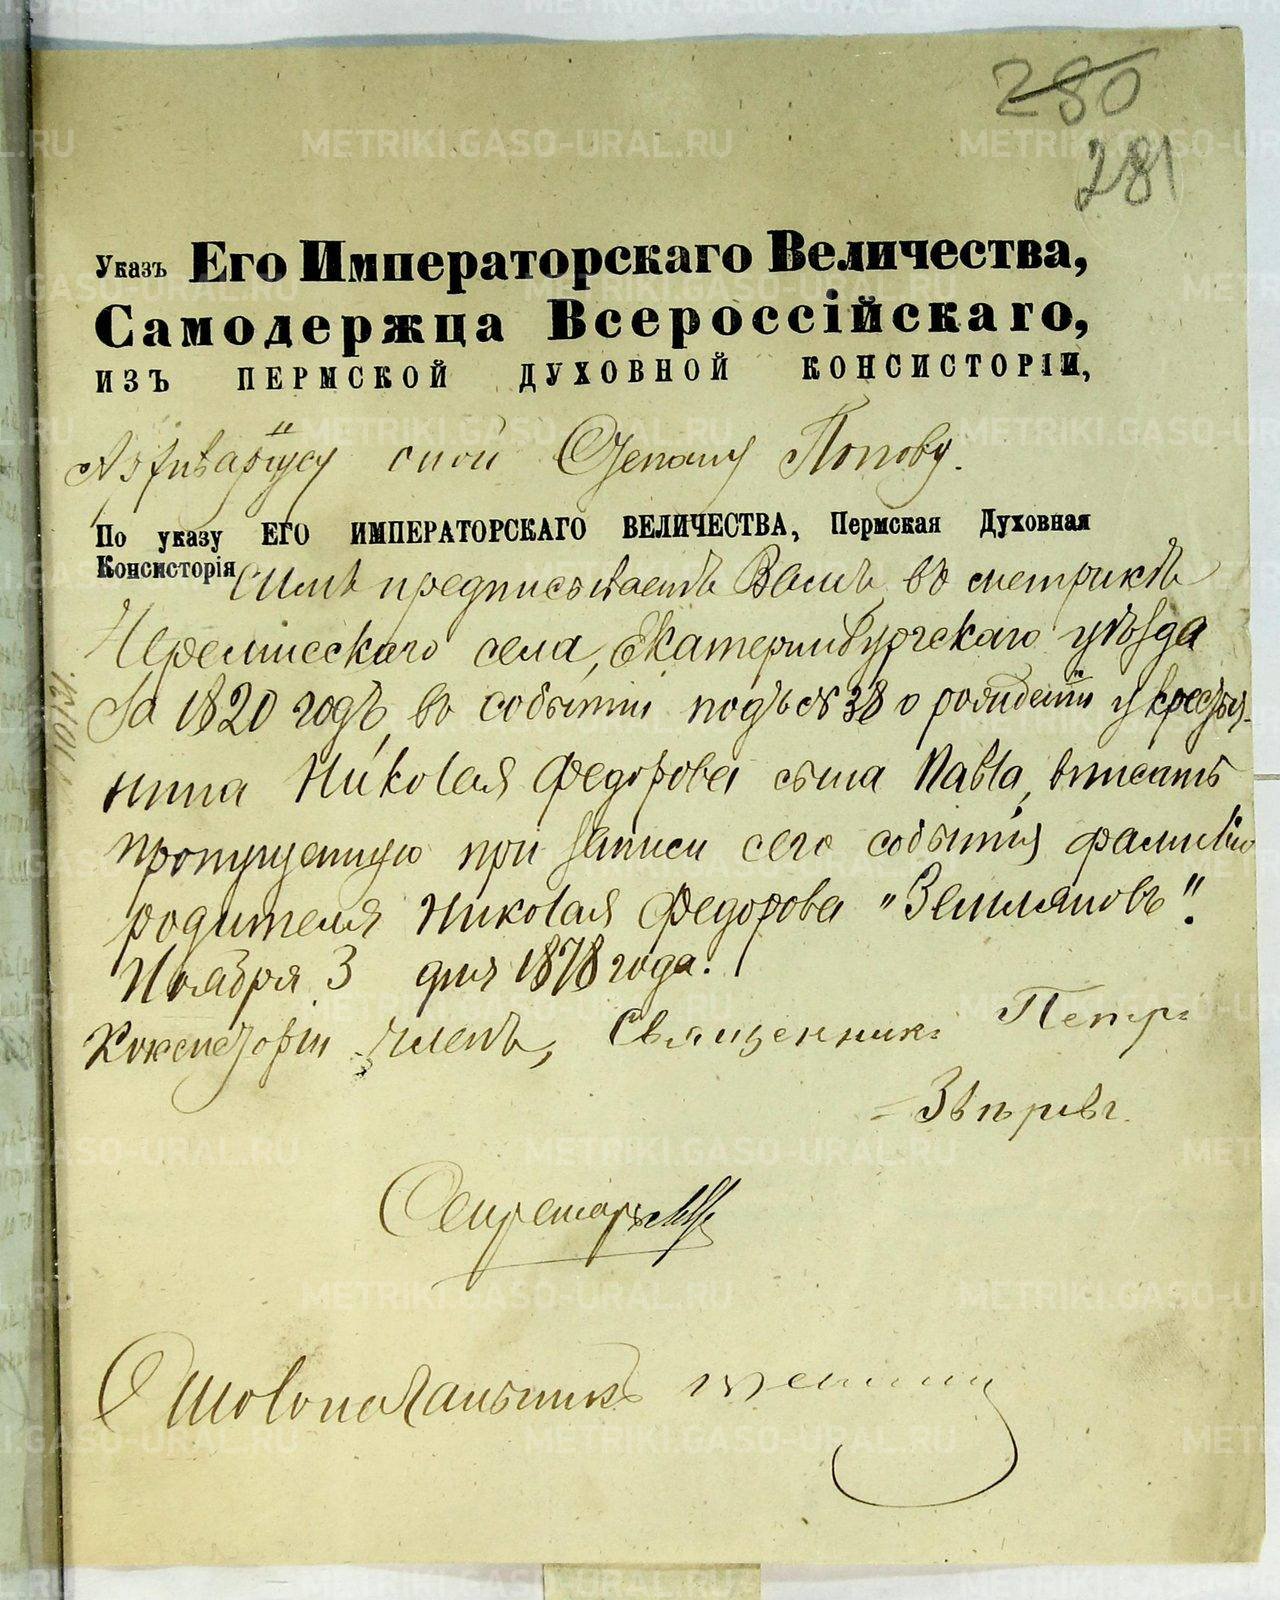 280
281
Указъ Его Императорскаго Величества,
Самодержца Всероссійскаго,
ИЗЪ ПЕРМСКОЙ ДУХОВНОЙ КОНСИСТОРІИ,
Архиваріусу оной Степану Попову.
По указу ЕГО ИМПЕРАТОРСКАГО ВЕЛИЧЕСТВА, Пермская Духовная
Консисторія симъ предписываетъ Вамъ, въ метрикѣ
Черемисскаго села, Екатеринбургскаго уѣзда
за 1820 годъ, въ событіи подъ № 38 о рожденіи у крестья-
нина Николая Федорова сына Павла, вписать
пропущенную при записи сего событія фамилію
родителя Николая Федорова „Земляновъ".
Ноября 3 дня 1878 года.
Консисторіи членъ, Священникъ Петръ
Секретарь
Столоначальникъ
METRIKI.GASO-URAL.RU